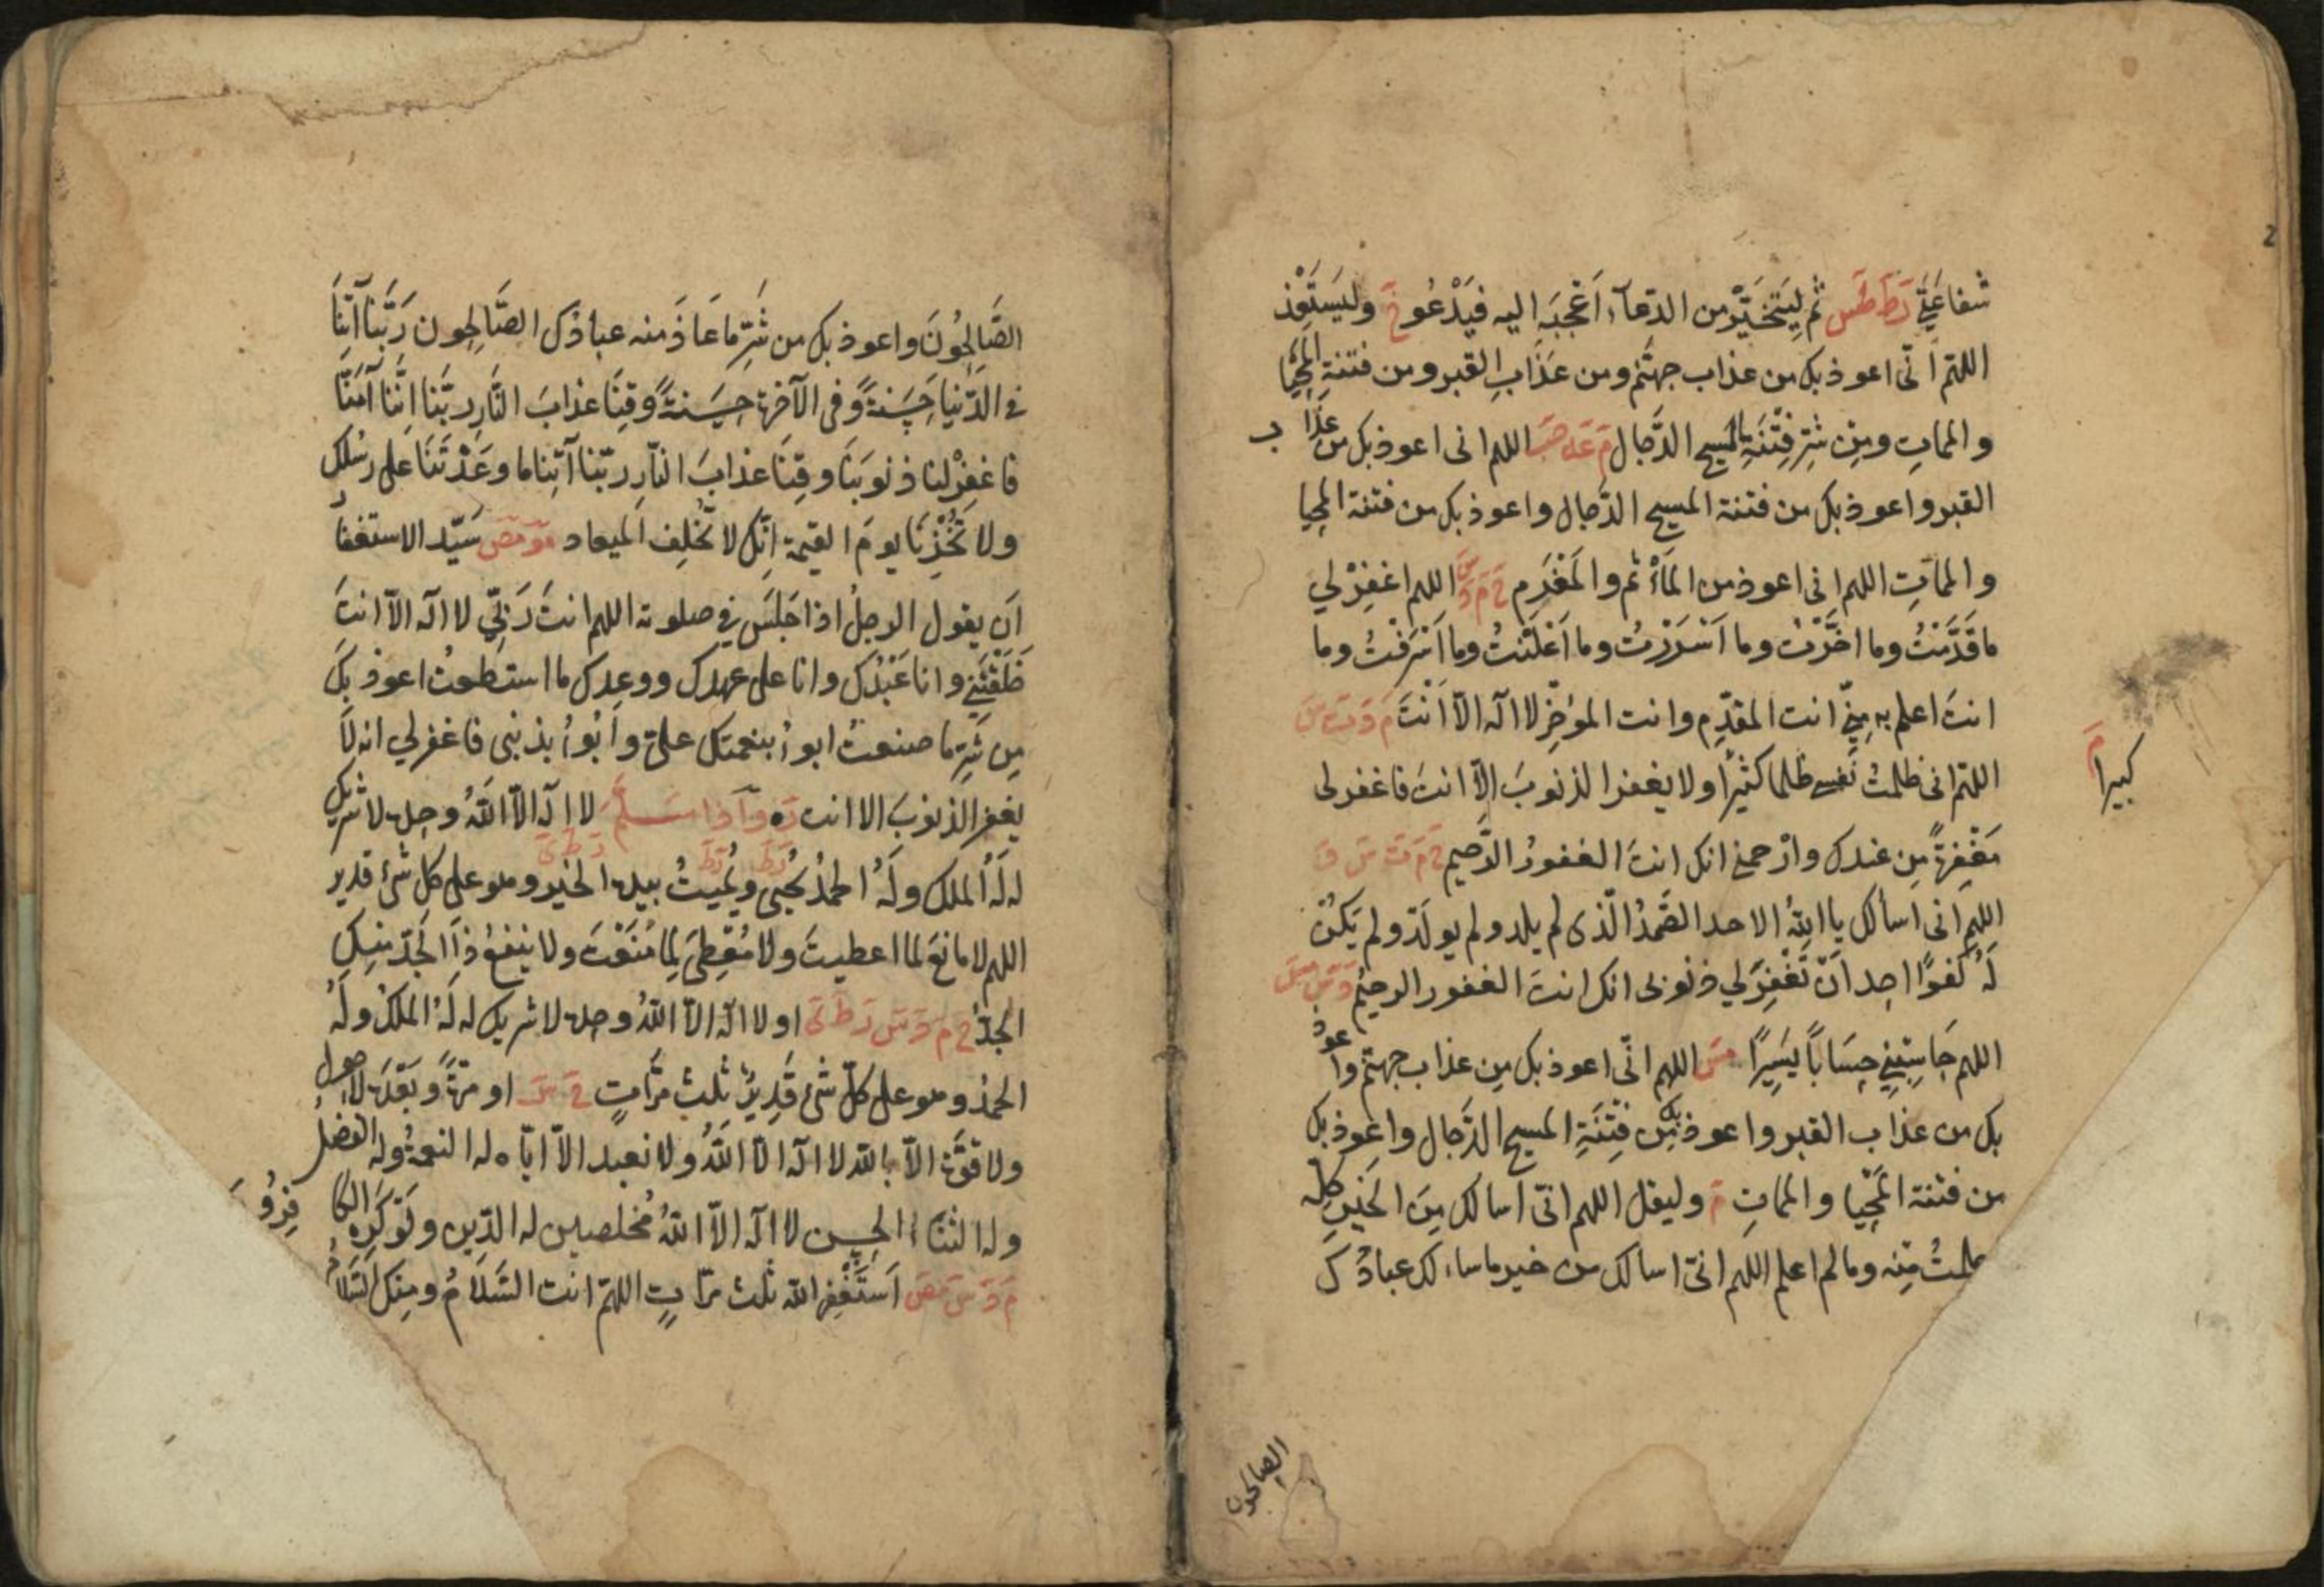 شفاعَتِي رَ طَ طَس ثم لِيَتَخَيَّرْ من الدعآء اَعْجَبَه اليه فيَدْعُو خَ وليَستَعِذ
اللهم انّى اعوذ بك من عذاب جهنّم ومن عَذَابِ القبر ومن فتنةِ المَحْيَا
والمماتِ ومِن شَرِّ فِتْنَةِ المسيح الدَّجالِ مَ عَه حِبَ اللهم انى اعوذ بك من عَذَا ب
القبر واعوذ بك من فتنة المسيح الدَّجال واعوذ بك من فتنة المحيا
والممَاتِ اللهم انى اعوذ من المَأْثم والمَغْرَم خَ مَ دَ سَ اللهم اغفِرْ لي
ما قَدَّمْتُ وما اخَّرْتُ وما اَسْرَرْتُ وما اَعْلَنْتُ وما اَسْرَفْتُ وما
انتَ اعلم به مِنِّى انت المقدِّم وانت المؤخِّر لا اله الّا اَنْتَ مَ دَ تَ سَ
اللهم انى ظلمتُ نَفسِى ظلما كثيرًا ولا يغفر الذنوبَ الّا انتَ فاغفر لى
كبيرا مَ
مَغْفِرةً مِن عندك وارْحمنى انك انتَ الغفورُ الرَّحيم خَ مَ تَ سَ قَ
اللهم انى اسألك يا اللهُ الاحد الصَّمَدُ الّذى لم يلد ولم يولَدْ ولم يَكُنْ
لَهُ كُفوًا احد اَنْ تَغْفِرَ لي ذنوبى انك انتَ الغفور الرحيمُ دَ سَ مسَ
اللهم حَاسِبْنِي حِسَابًا يَسِيرًا مسَ اللهم انّى اعوذ بك مِن عذاب جهنّم واَ عوذ
بك من عذاب القبر واعوذ بك مِن فِتْنَةِ المسيح الدَّجال واعوذ بك
من فتنة المَحْيا والمماتِ مَ وليقل اللهم انّى اسالك مِنَ الخَيْرِ كلِّه
علمتُ مِنْه وما لم اعلم اللهم انّى اسالك من خير ما ساءلك عبادُكَ
الصالحون
الصَّالِحُونَ واعوذ بك من شَرِّ مَا عَاذَ منه عبادُك الصَّالِحون رَبَّنا آتِنَا
فى الدّنيا حَسَنةً وَّفى الآخرة حَسَنةً وَّقِنَا عذابَ النَّارِ ربَّنَا اِنَّنا آمَنَّا
فاغفِرْ لنا ذنوبَنَا وقِنَا عذابَ النّارِ ربّنا آتِنا ما وعَدْتَنَا على رسُلك
ولا تُخْزِنَا يومَ القيمة اِنّك لا تُخْلِف الميعاد مَو مَصَ سَيّد الاستغفارُ
اَن يقول الرجلُ اذا جَلَسَ في صلوته اللهم انتَ رَبِّي لا اله الّا انتَ
خَلَقْتَنِي وانا عَبْدُك وانا على عهدك ووعدِك ما استطعتُ اعوذ بكَ
مِن شَرِّ ما صنعتُ ابوءُ بنعمتك علىَّ وابُوءُ بذنبى فاغفر لي انه لَا
يغفر الذنوبَ الا انت رَه وَاذا سَلَّمَ لا اله الّا اللّهُ وحده لا شريكَ
له لَهُ الملك ولَهُ الحمدُ يُحيى ويُميتُ بيده الخير وهو على كل شئ قدير
اللهم لا مانعَ لما اعطيتَ ولا مُعْطِىَ لِمَا مَنَعْتَ ولا ينفعُ ذَا الجَدِّ منكِ
الجدُّ خَ مَ دَ سَ رَ طَ ىَ او لا اله الّا اللّهُ وحده لا شريك له لَهُ الملكُ ولَهُ
الحمدُ وهو على كلّ شئ قَدِيرٌ ثلث مرَّاتٍ خَ سَ او مرّةً وبَعْدَه لَاحول
ولا قوَّة الّا باللّه لا اله الّا اللّهُ ولا نعبد الّا ايّاه له النعمةُ وله الفضلُ
وله الثنَاءُ الحسن لا اله الّا اللّهُ مُخلصين له الدّين ولَوْ كَرِه الكا فِرُونَ
مَ دَ سَ مَصَ اَستَغْفِر اللّه ثلث مرّاتٍ اللهمّ انت السَّلَامُ ومِنك السَّلامُ